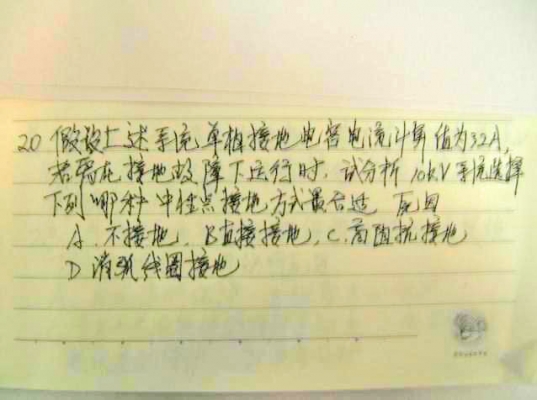 20 假设上述系统,单相接地电容电流计算值为32A,
若需在接地故障下运行时,试分析10kV系统选择
下列哪种中性点接地方式最合适
A.不接地、B直接接地、C.高阻抗接地
D 消弧线圈接地